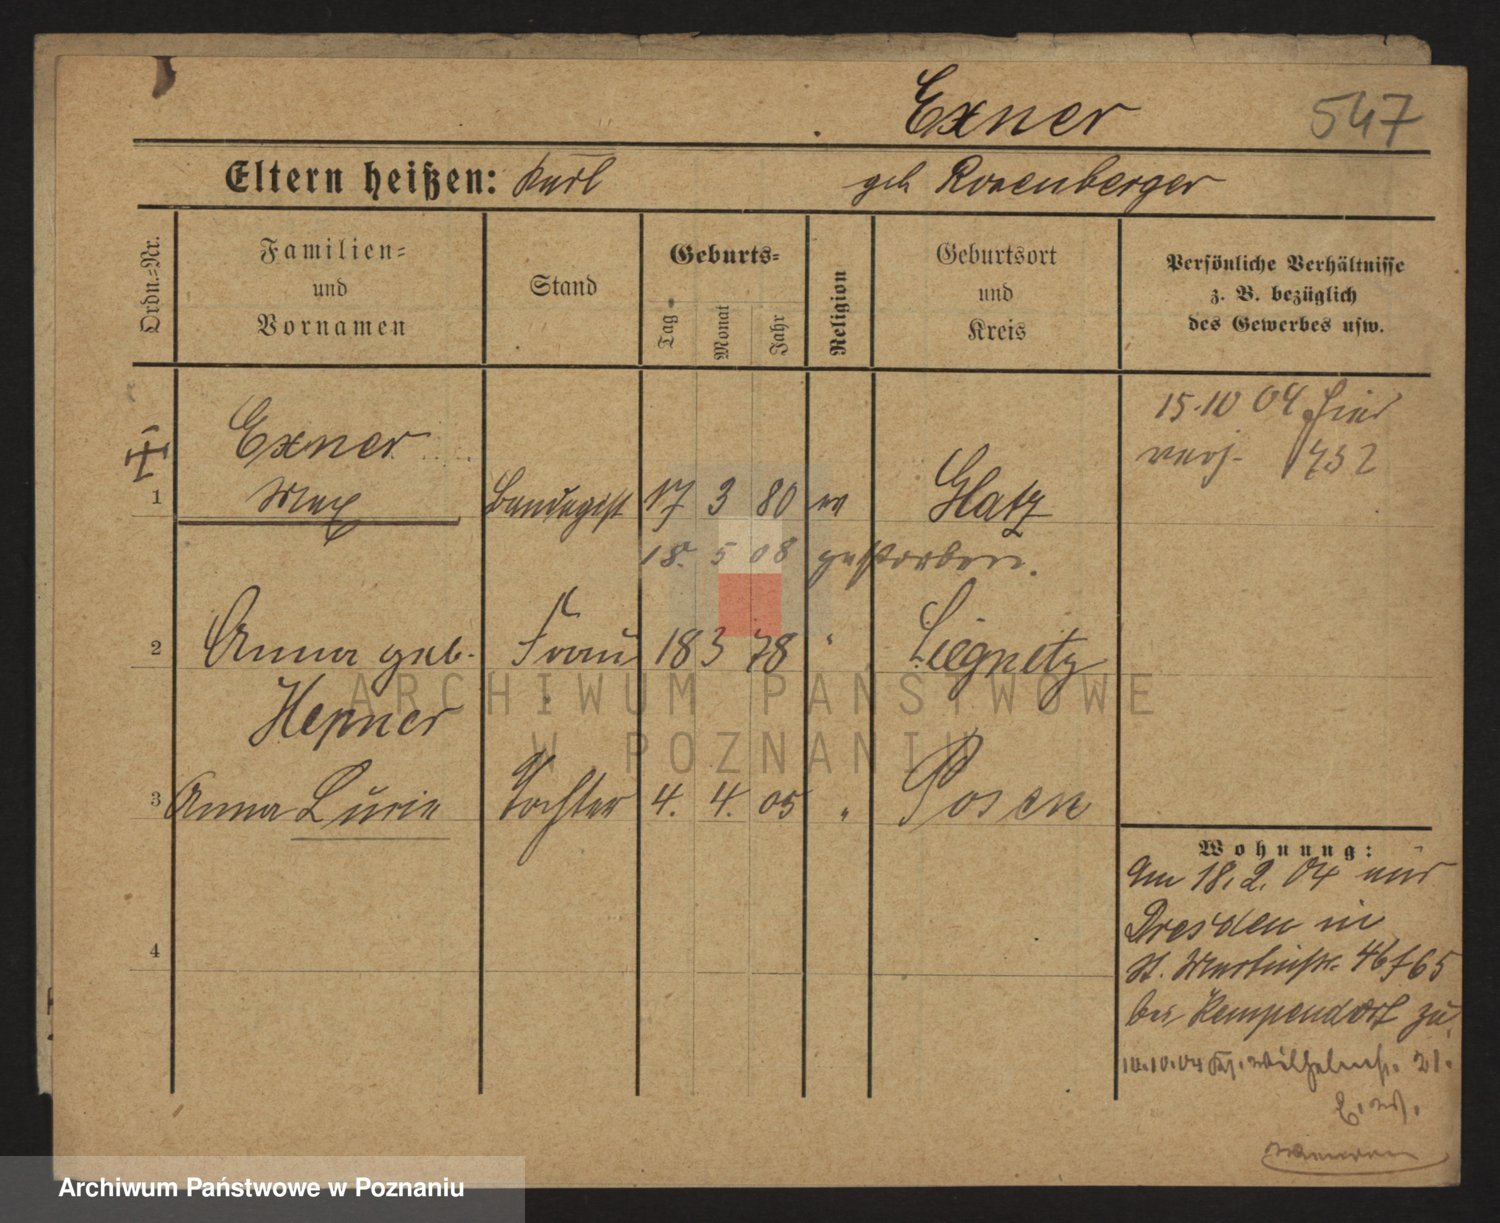 Exner 547
Eltern heißen: Karl geb Rosenberger
Ordn.-Nr.
Familien-
und
Vornamen
Stand
Geburts-
Tag
Monat
Jahr
Religion
Geburtsort
und
Kreis
Persönliche Verhältnisse
z. B. bezüglich
des Gewerbes usw.
15.10 04 hier
verz. 752
Exner
1 Max Bandagist 17 3 80 Glatz
18. 5 08 gestorben.
2 Anna geb. Frau 18 3 78 " Liegnitz
Hepner
3 Anna Lucie Tochter 4. 4. 05 " Posen
4
Wohnung:
Am 18.2.04 aus
Dresden in
St. Martinstr. 46/65
bei Kempendorf zu
10.10.04 Wilhelmstr. 21.
ARCHIWUM PAŃSTWOWE
W POZNANIU
Archiwum Państwowe w Poznaniu